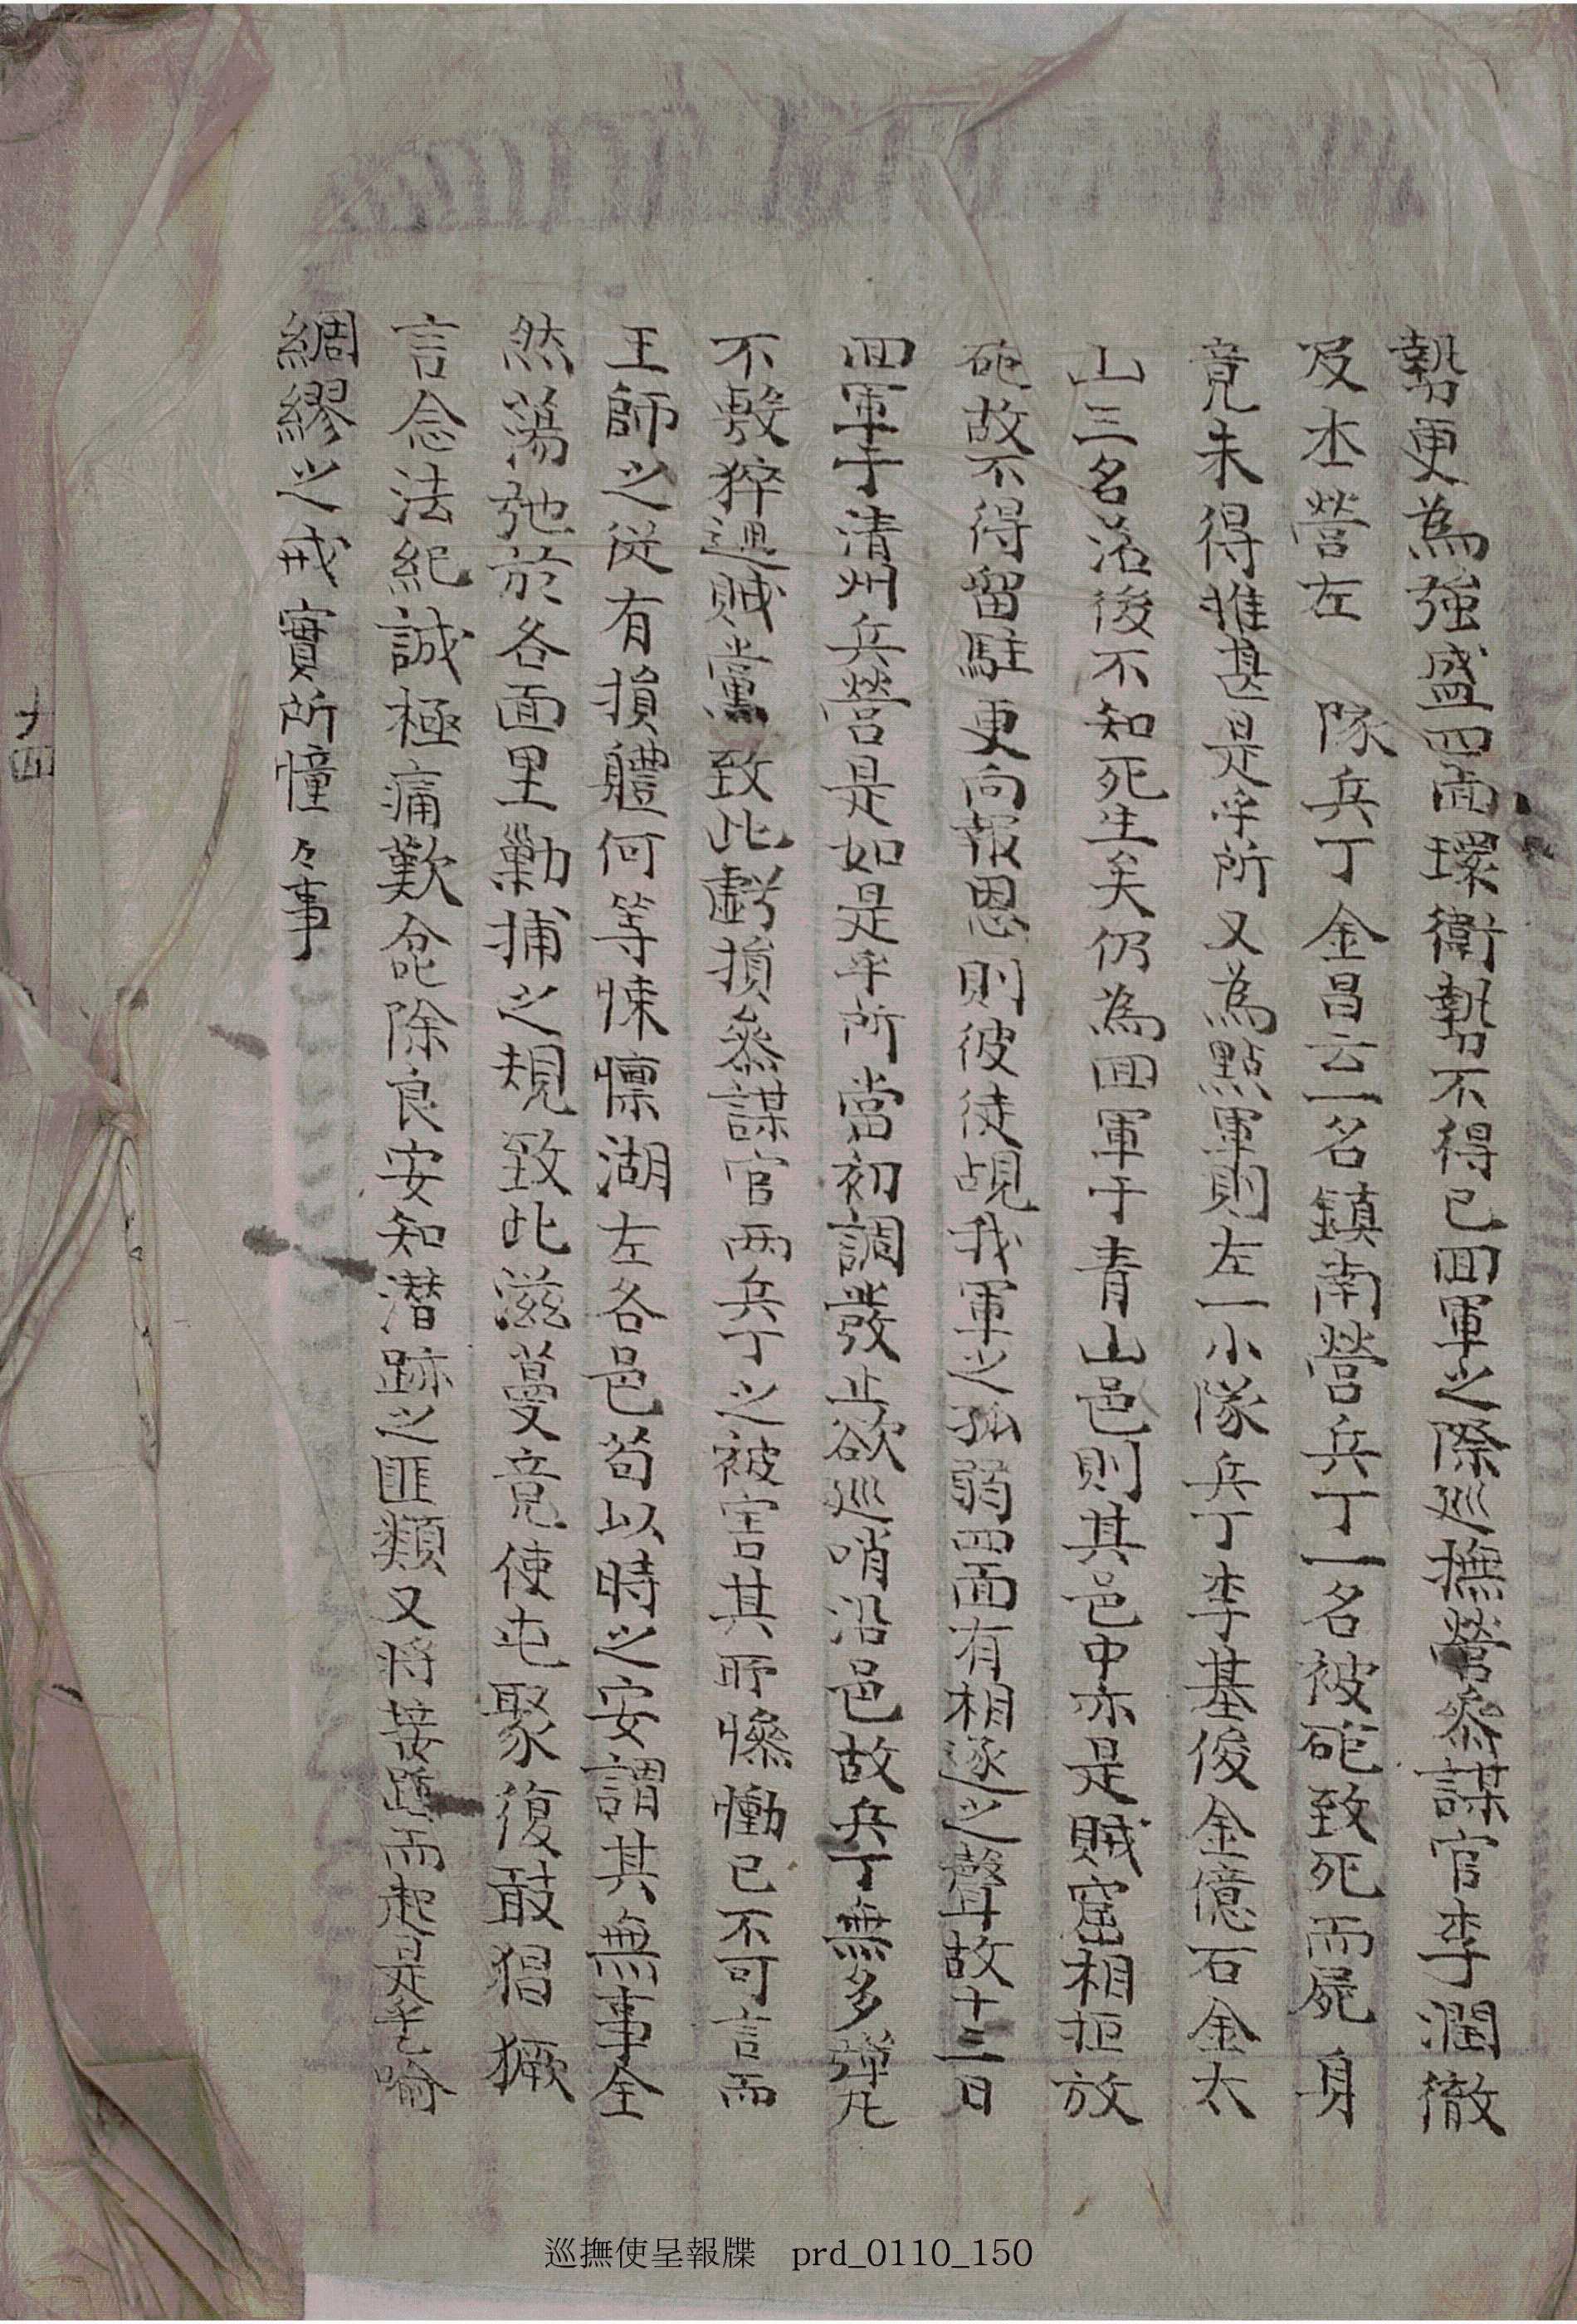 勢更為強盛四面環衛勢不得已回軍之際巡撫營叅謀官李潤徹
及本營左 隊兵丁金昌云一名鎮南營兵丁一名被砲致死而屍身
竟未得推甚是乎所又為點軍則左一小隊兵丁李基俊金億石金太
山三名落後不知死生矣仍為回軍于青山邑則其邑中亦是賊窟相拒放
砲故不得留駐更向報恩則彼徒覘我軍之孤弱四面有相逐之聲故十三日
回軍于清州兵營是如是乎所當初調發止欲巡哨沿邑故兵丁無多彈丸
不敷猝遇賊黨致此虧損叅謀官兩兵丁之被害其所慘慟已不可言而
王師之從有損軆何等悚懍湖左各邑苟以時之安謂其無事全
然蕩弛於各面里勦捕之規致此滋蔓竟使屯聚復敢猖獗
言念法紀誠極痛歎除良安知潜跡之匪類又將接踵而起是乎喩
綢繆之戒實所憧々事
十四
巡撫使呈報牒 prd_0110_150